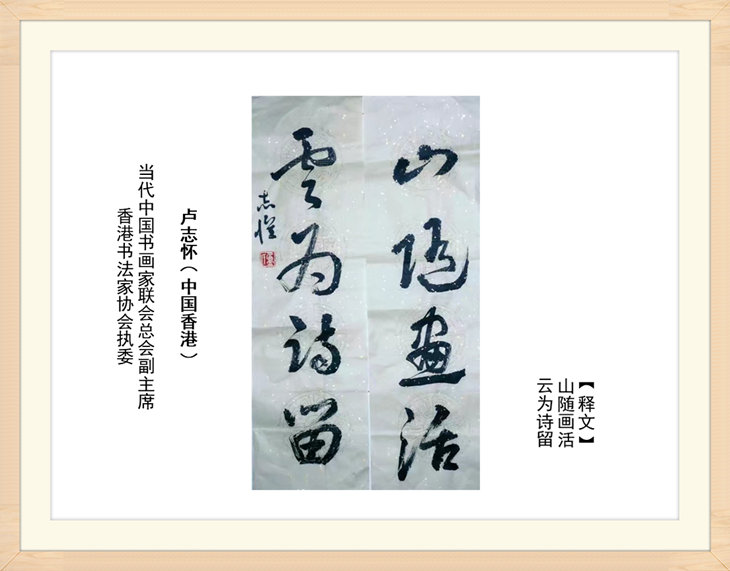 【释文】
山随画活
云为诗留
山隨畫活
雲為詩留
志怀
卢志怀（中国香港）
当代中国书画家联会总会副主席
香港书法家协会执委